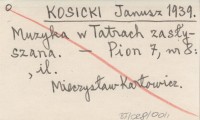 KOSICKI Janusz 1939.
Muzyka w Tatrach zasły-
szana. — Pion 7, nr 8:
, il.
Mieczysław Karłowicz.